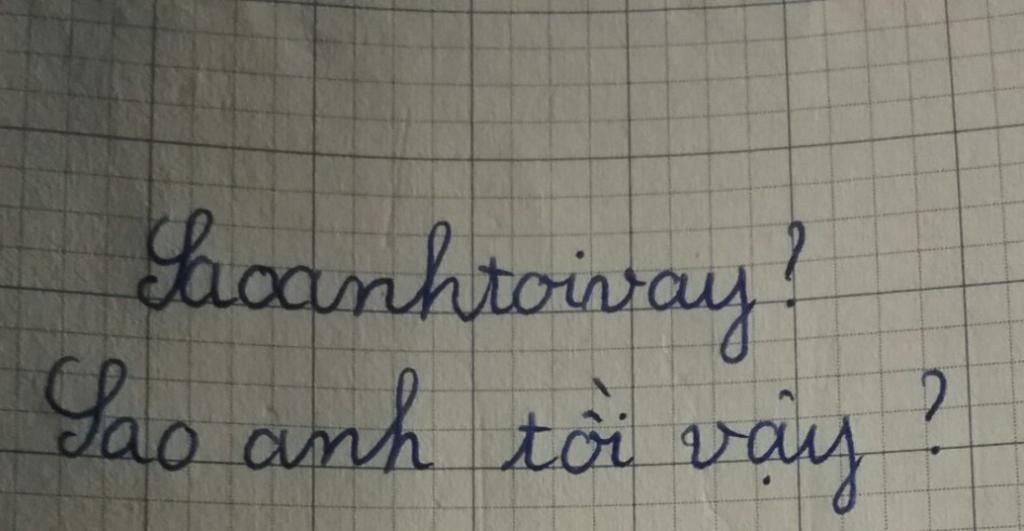 Saoanhtoivay?
Sao anh tồi vậy ?